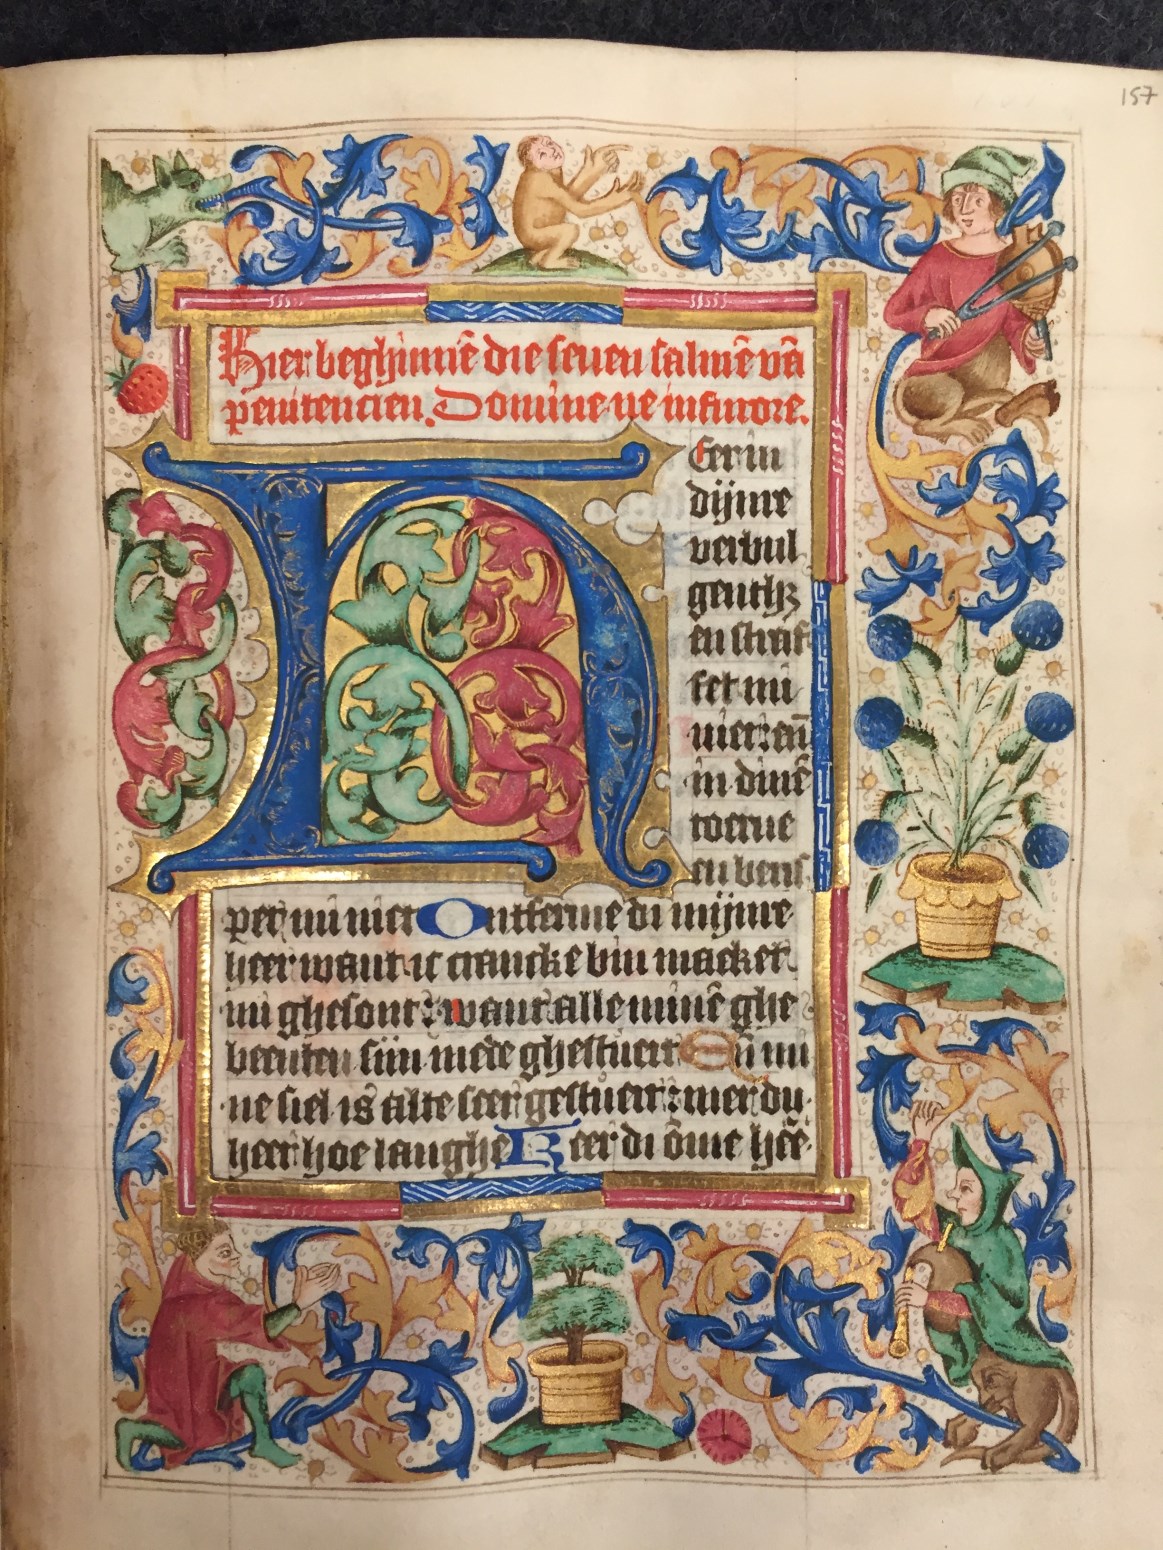 157
Hier beghinnē die seuen salmē vā
penitencien. Domine ne in furore.
H
Eer in
dijnre
verbul
gentħʒ
en straf
fet mi
niet: eñ
in dinē
toerne
en beris
pet mi niet Ontferme di mijnre
heer want ic crancke bin maket
mi ghesont: want alle minē ghe
beenten siin mede ghestuert Eñ mi
ne siel is alte seer gestuert: mer du
heer hoe langhe Keer di ōme hēē